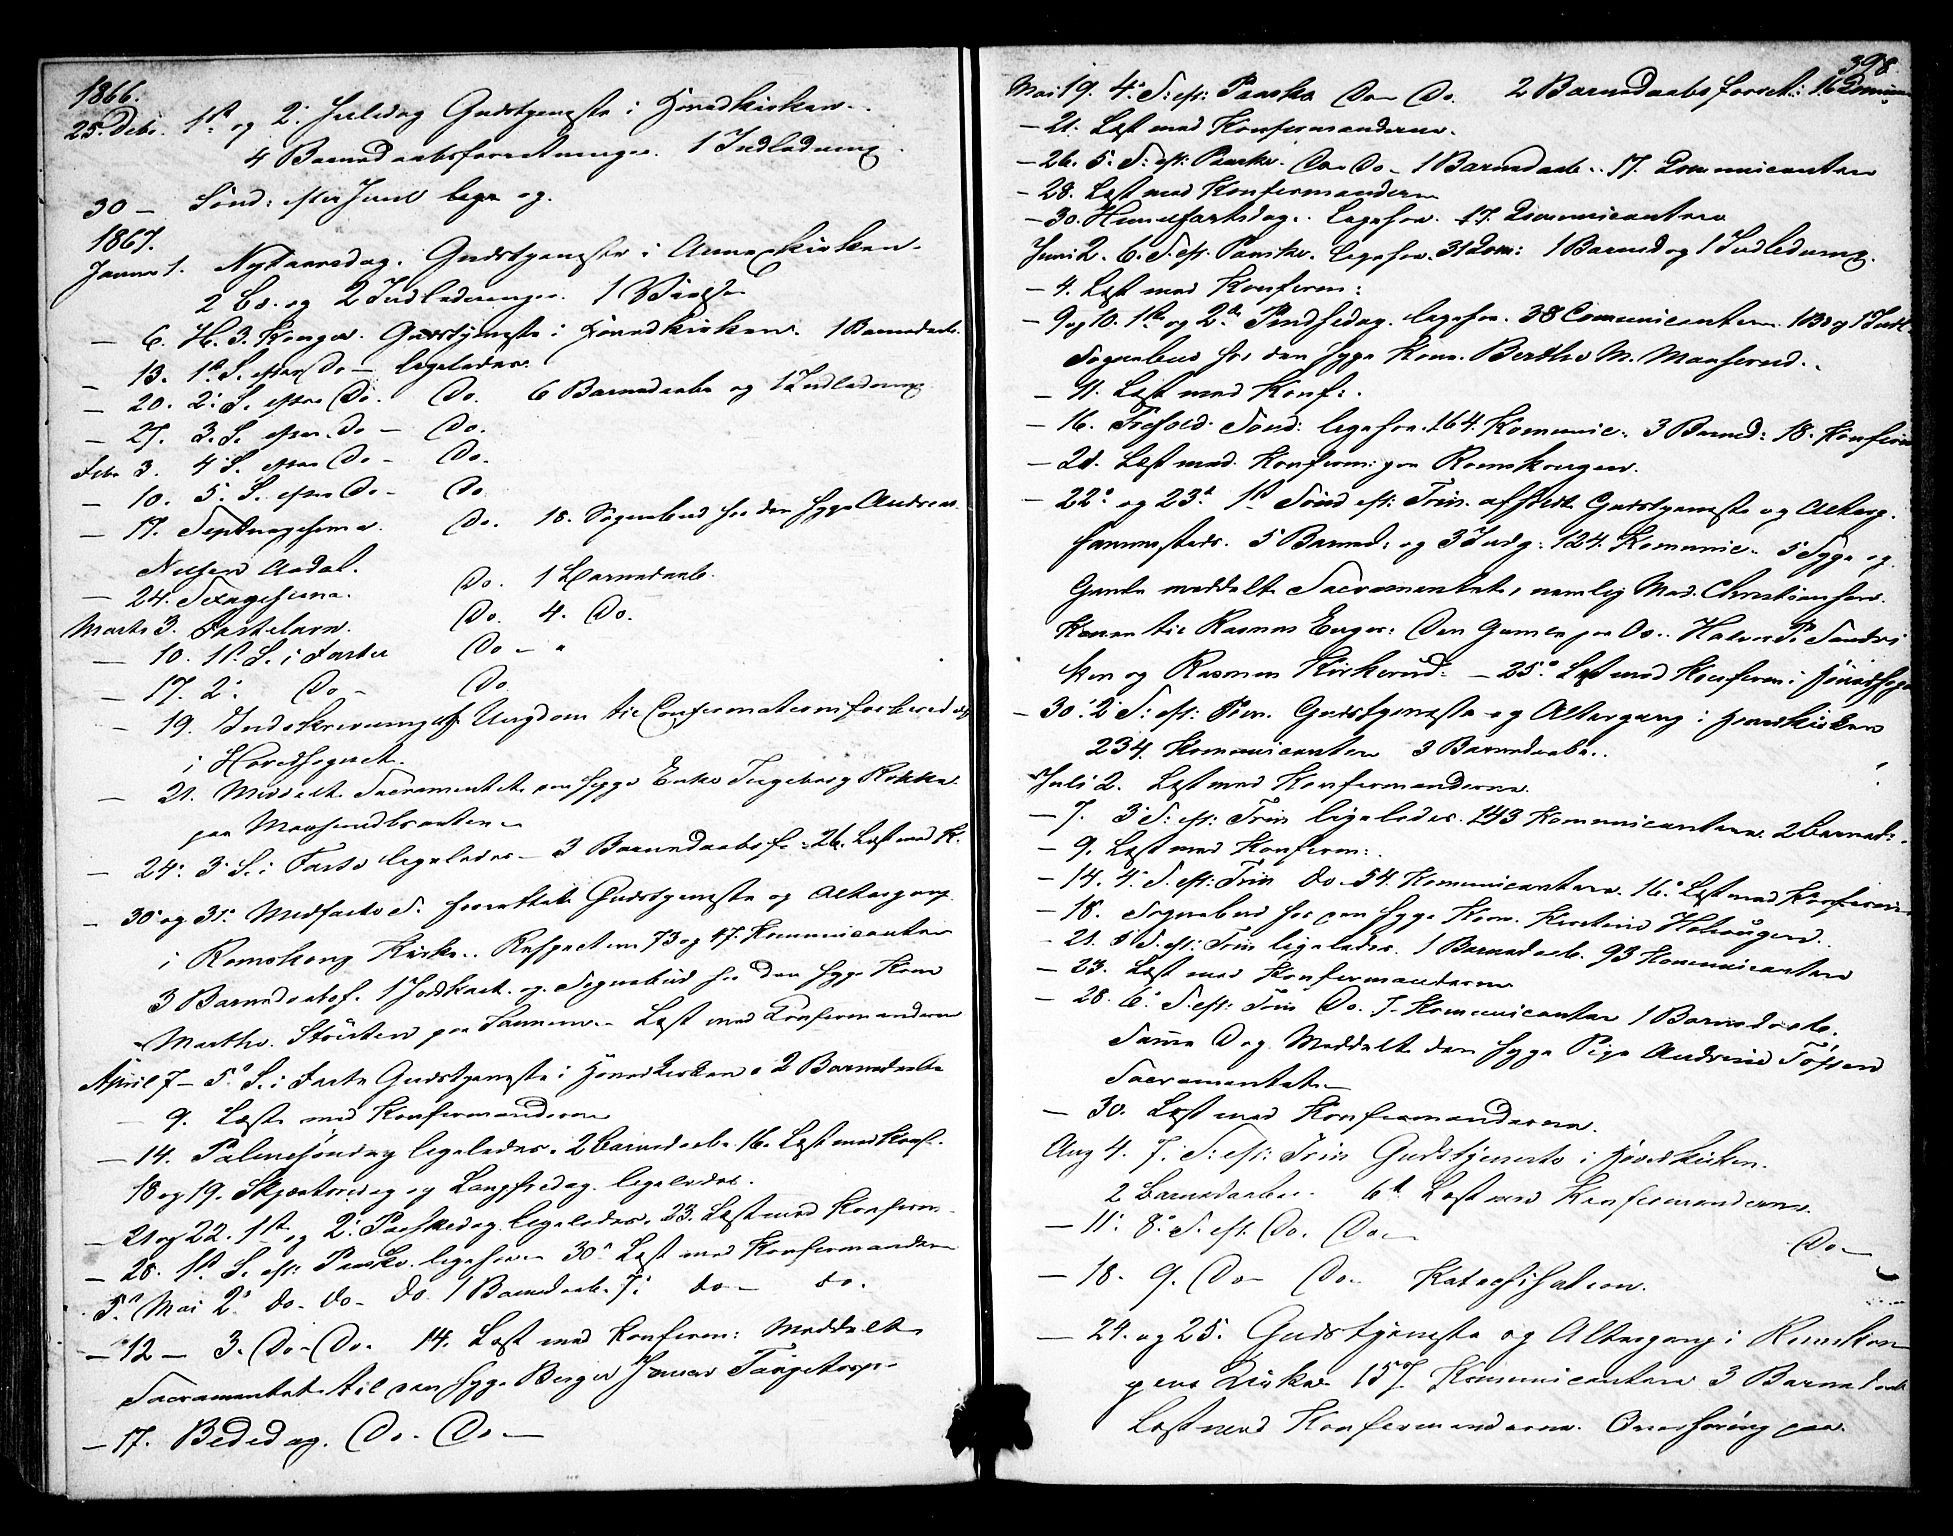 1866.
25. Debr. 1st og 2. Juledag Gudstjeneste i Hovedkirken.
4 Barnedaabsforretninger. 1 Indledning.
30 — Sönd: efter Juul lige og.
1867.
Januar 1. Nytaarsdag. Gudstjeneste i Annexkirken.
2 Bd. og 2 Indledninger. 1 Vielse
— 6. H. 3. Konger. Gudstjeneste i Hovedkirken. 1 Barnedaab.
— 13. 1st S. efter Do — ligeledes.
— 20. 2. S. efter Do. Do. 6 Barnedaabe og 1 Indledning
— 27. 3. S. efter Do — Do.
Febr 3. 4 S. efter Do — Do.
— 10. 5. S. efter Do — Do
— 17. Septuagesima. Do. 18. Sognebud hos den syge Andreas
Nielsen Aadal.
— 24. Sexagesima. Do. 1 Barnedaab.
Marts 3. Fastelavn. Do. 4. Do.
— 10. 1st. S. i Faste Do — "
— 17. 2. Do — Do
— 19. Indskrivning af Ungdom til Confirmationsforberedelse
i Hovedsognet.
— 21. Meddelt Sacramentet den syge Enke Ingeborg Kokken
paa Mansrudbraaten
— 24. 3 S. i Faste ligeledes — 3 Barnedaabsf. — 26. Læst med K.
— 30 og 31. Midfaste S. forrettet Gudstjeneste og Altergang
i Romskoug Kirke. Respective 73 og 47 Kommunicanter
3 Barnedaabsf. 1 Jordkast. og Sognebud hos den syge Kone
Marthe Stöisten paa Sannum. — Læst med Konfirmanderne
April 7 — 5. S. i Faste Gudstjeneste i Hovedkirken. 2 Barnedaabe
— 9. Læst med Konfirmanderne
— 14. Palmesöndag ligeledes. 2 Barnedaabe. 16. Læst med Konf.
18 og 19. Skjærtorsdag og Langfredag ligeledes.
— 21 og 22. 1st og 2. Paaskedag ligeledes. 23. Læst med Konfirm.
— 28. 1st. S. eft: Paaske. ligesaa — 30. Læst med Konfirmanderne
5. Mai 2. do. do — do. 1 Barnedaab. 7. do — do.
— 12 — 3. Do — Do. 14. Læst med Konfirm: Meddelt
Sacramentet til den syge Berger Jensen Tangetorp.
— 17. Bededag. Do — Do —
398.
Mai 19. 4. S. eft: Paaske Do — Do. 2 Barnedaabsforret: 16 Commun
— 21. Læst med Konfirmanderne.
— 26. 5. S. eft: Paaske. Do — Do — 1 Barnedaab. 17. Communicantere
— 28. Læst med Konfirmanderne
— 30. Himmelfartsdag. ligesaa. 17. Communicantere
Juni 2. 6. S. eft. Paaske. ligesaa 31 Com: 1 Barned og 1 Indledning.
— 4. Læst med Konfirm:
— 9 og 10. 1ste og 2den Pindsedag. ligesaa. 38 Communicantere. 1 Bd og 1 Indl.
Sognebud hos den syge Kone. Berthe M. Mansrud.
— 11. Læst med Konf:.
— 16. Trefold. Sönd: ligesaa. 164. Kommunic. 3 Barned: 18. Konfirm
— 21. Læst med Konfirm: paa Romskougen.
— 22. og 23. 1st Sönd eft: Trin. afholdt Gudstjeneste og Alterg.
sammesteds. 5 Barned: og 3 Indg. 124. Kommunic. 5 Syge og
Gamle meddelt Sacramentet, nemlig Mad. Christiansen
Konen til Rasmus Enger: Den Gamle paa Do. Halvor P. Sandvi
ken og Rasmus Kirkerud. — 25. Læst med Konfirm i Hovedsogn
— 30. 2 S. eft: Trin. Gudstjeneste og Altergang i Hovedkirken
234. Kommunicantere 3 Barnedaabe.
Juli 2. Læst med Konfirmanderne.
— 7. 3 S. eft: Trin ligeledes. 143 Kommunicantere. 2 Barned:.
— 9. Læst med Konfirm:.
— 14. 4. S. eft: Trin Do. 54. Kommunicantere. 16. Læst med Konfirm
— 18. Sognebud hos den syge Kone. Kirstine
— 21. 5 S. eft: Trin ligeledes. 1 Barnedaab. 93 Kommunicantere
— 23. Læst med Konfirmanderne
— 28. 6. S. eft: Trin Do. 7. Kommunicantere 1 Barnedaab.
Samme Dag Meddelt den syge Pige Andrine Töfsrud
Sacramentet. —
— 30. Læst med Konfirmanderne.
Aug 4. 7. S. eft: Trin Gudstjeneste i Hovedkirken.
2 Barnedaabe. 6. Læst med Konfirmanderne.
— 11. 8. S. eft. Do. Do — Do —
— 18. 9. Do — Do — Katechisation.
— 24. og 25. Gudstjeneste og Altergang i Romskou
gens Kirke 157. Kommunicantere 3 Barnedaab
Læst med Konfirmanderne. Overhöring paa